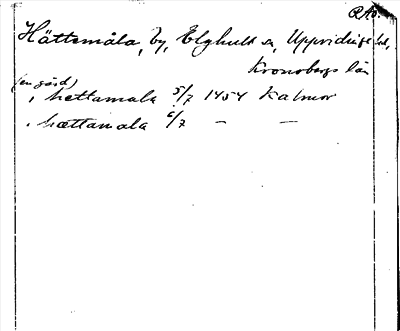 RAö.
Hättemåla, by, Elghults sn, Uppvidinge hd,
Kronobergs län
(en gård)
i hettamala 5/7 1454 Kalmar
i hættamala 6/7 — —